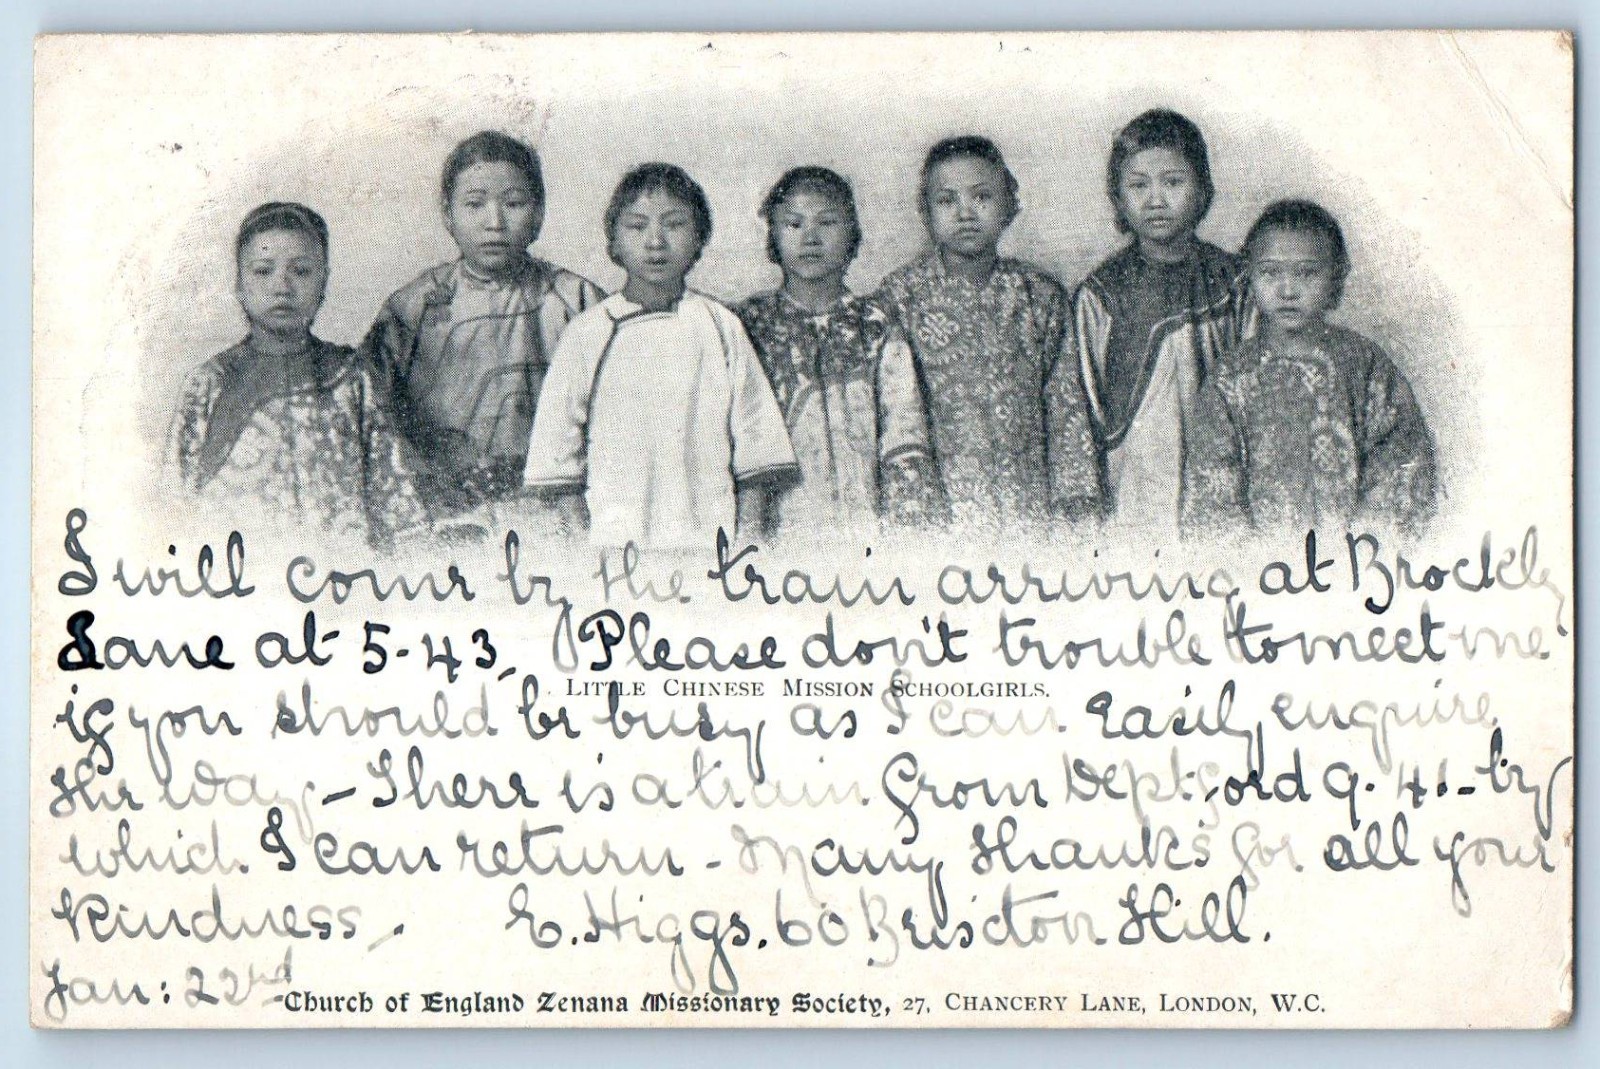 I will come by the train arriving at Brockly
Lane at 5-43. Please don't trouble to meet me
LITTLE CHINESE MISSION SCHOOLGIRLS.
if you should be busy as I can easily enquire
the way - There is a train from Deptford 9.41 - by
which I can return - Many thanks for all your
kindness. E. Higgs. 60 Brixton Hill.
Jan: 22nd
Church of England Zenana Missionary Society, 27, CHANCERY LANE, LONDON, W.C.